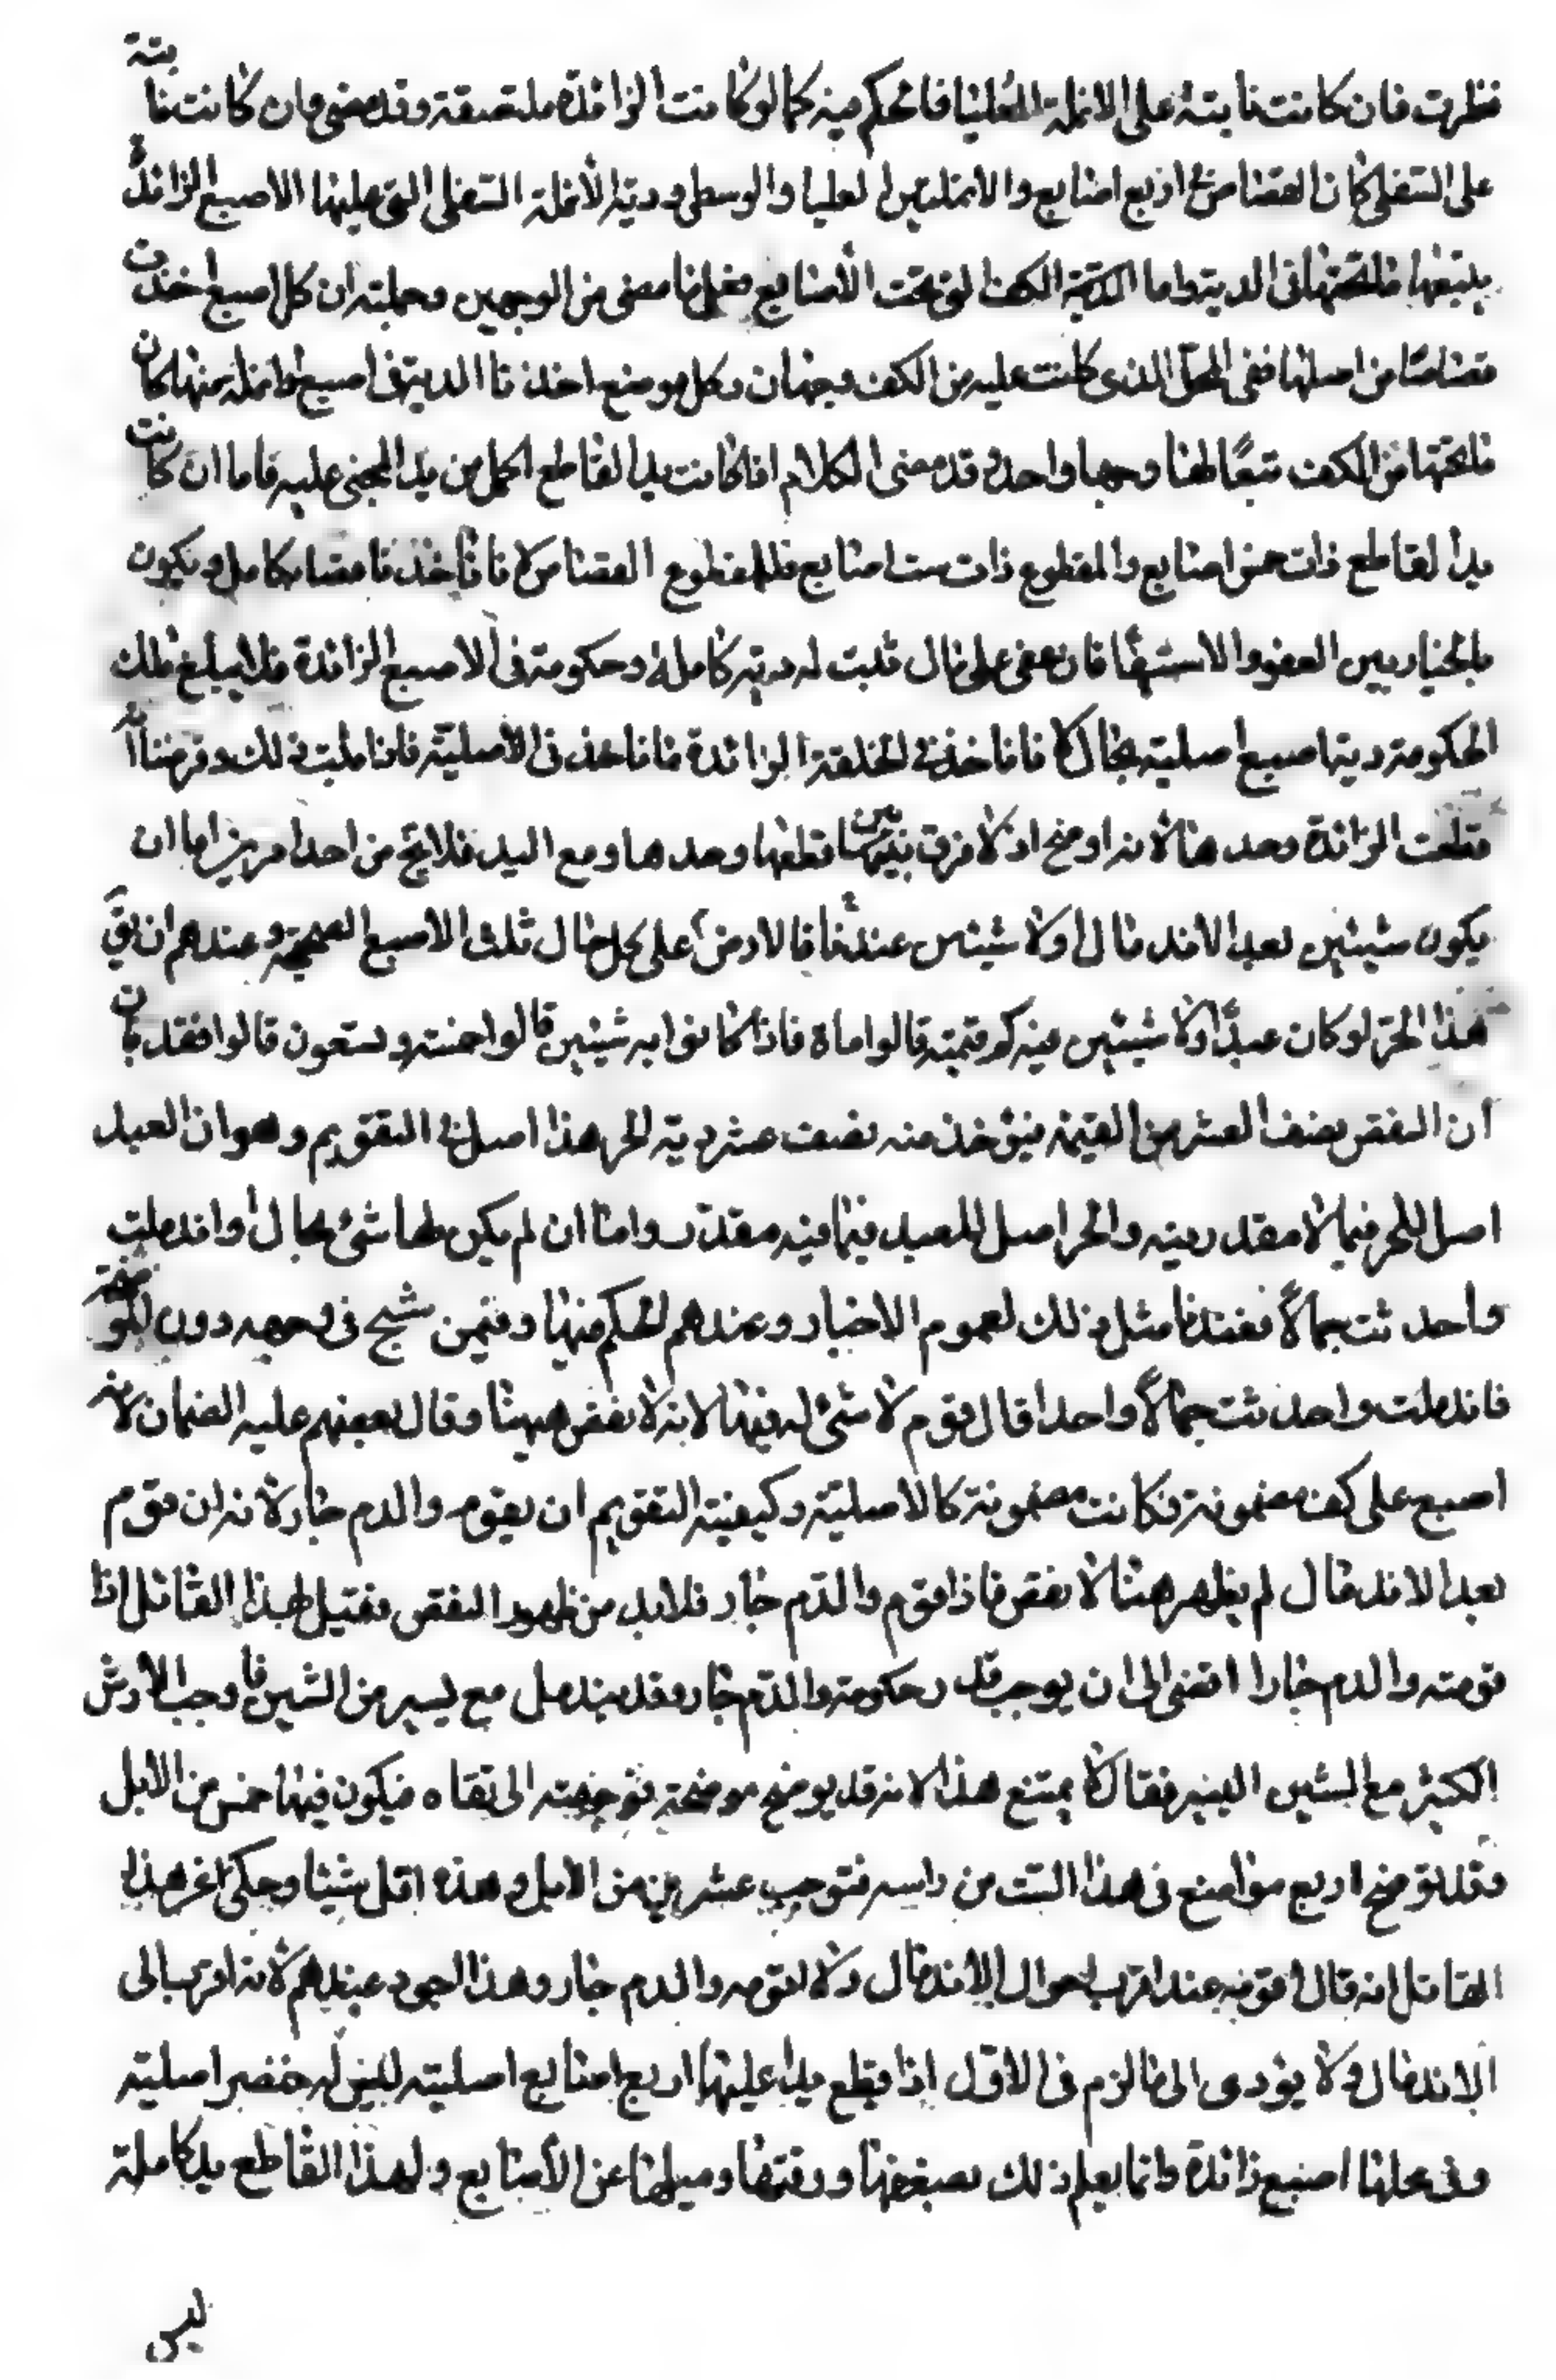 نظرت فان كانت نابتة على الانملة العليا فالحكم فيه كما لو كانت الزائدة ملتصقة وقد مضى وان كانت نابتة
على السفلى كان القصاص في اربع اصابع والانملتين العليا والوسطى ودية الأنملة السفلى التي عليها الاصبع الزائدة
يتبعها ما تحتها في الدية واما الكف التي تحت الأصابع فعلى ما مضى من الوجهين وجملته ان كل اصبع اخذت
قصاصا من اصلها ففي المحل الذي كانت عليه من الكف وجهان وكل موضع اخذنا الدية في اصبع او انملة منها كان
ما تحتها من الكف تبعًا لها وجها واحدا وقد مضى الكلام اذا كانت يد القاطع اكمل من يد المجني عليه فاما ان كانت
يد القاطع ذات خمس اصابع والمقطوع ذات ست اصابع فللمقطوع القصاص لانا نأخذ ناقصا بكامل ويكون
بالخيار بين العفو والاستيفاء فان عفى على مال ثبت له دية كاملة وحكومة في الاصبع الزائدة فلا يبلغ بتلك
الحكومة دية اصبع اصلية بحال لانا لا نأخذ في الخلقة الزائدة ما نأخذ في الاصلية فاذا ثبت ذلك وفرضنا انه
قطعت الزائدة وحدها لانه اوضح اذ لا فرق بين قطعها وحدها ومع اليد فلا يخ من احد امرين اما ان
يكون شينين بعد الاندمال او لا شين عندنا فالارش على كل حال ثلث الاصبع الصحيحة وعندهم ان يقال
هذا الحر لو كان عبدًا ولا شين فيه كم قيمته قالوا ماة فاذا كانوا به شينين قالوا خمسة وتسعون قالوا فقد بان
ان النقص نصف العشر من القيمة فيؤخذ منه نصف عشر دية الحر هذا اصل في التقويم وهو ان العبد
اصل للحر فيما لا مقدر فيه والحر اصل للعبد فيما فيه مقدر واما ان لم يكن لها شيء بحال او اندملت
واحدثت جمالاً فعندنا مثل ذلك لعموم الاخبار وعندهم الحكم فيها وفيمن شج في وجهه دون الموضحة
فاندملت واحدثت جمالاً واحدا قال قوم لا شيء له فيها لانه لا نقص هيهنا وقال بعضهم عليه الضمان لانه
اصبع على كف مضمونة فكانت مضمونة كالاصلية وكيفية التقويم ان يقوم والدم جار لانه ان قوم
بعد الاندمال لم يظهر هناك نقص فاذا قوم والدم جار فلا بد من ظهور النقص فقيل لهذا القائل اذا
قومته والدم جارا افضى الى ان يوجب قدر حكومة والدم جار وقد يندمل مع يسير من الشين فأوجب الأرش
الكثير مع الشين اليسير فقال لا يمتنع هذا لانه قد يوضح موضحة من جبهته الى قفاه فيكون فيها خمس من الابل
وقد يوضح اربع مواضع في هذا السمت من راسه فتوجب عشرين من الابل وهذه اقل شينا وحكى عن هذا
القائل انه قال اقومه عند اقرب احوال الاندمال ولا اقومه والدم جار وهذا اجود عندهم لانه اقرب الى
الاندمال ولا يؤدي الى ما لزم في الاول اذا قطع يدا عليها اربع اصابع اصلية ليس له خنصر اصلية
وفي محلها اصبع زائدة وانما يعلم ذلك بصغرها ورقتها وميلها عن الأصابع ولهذا القاطع يد كاملة
ليس